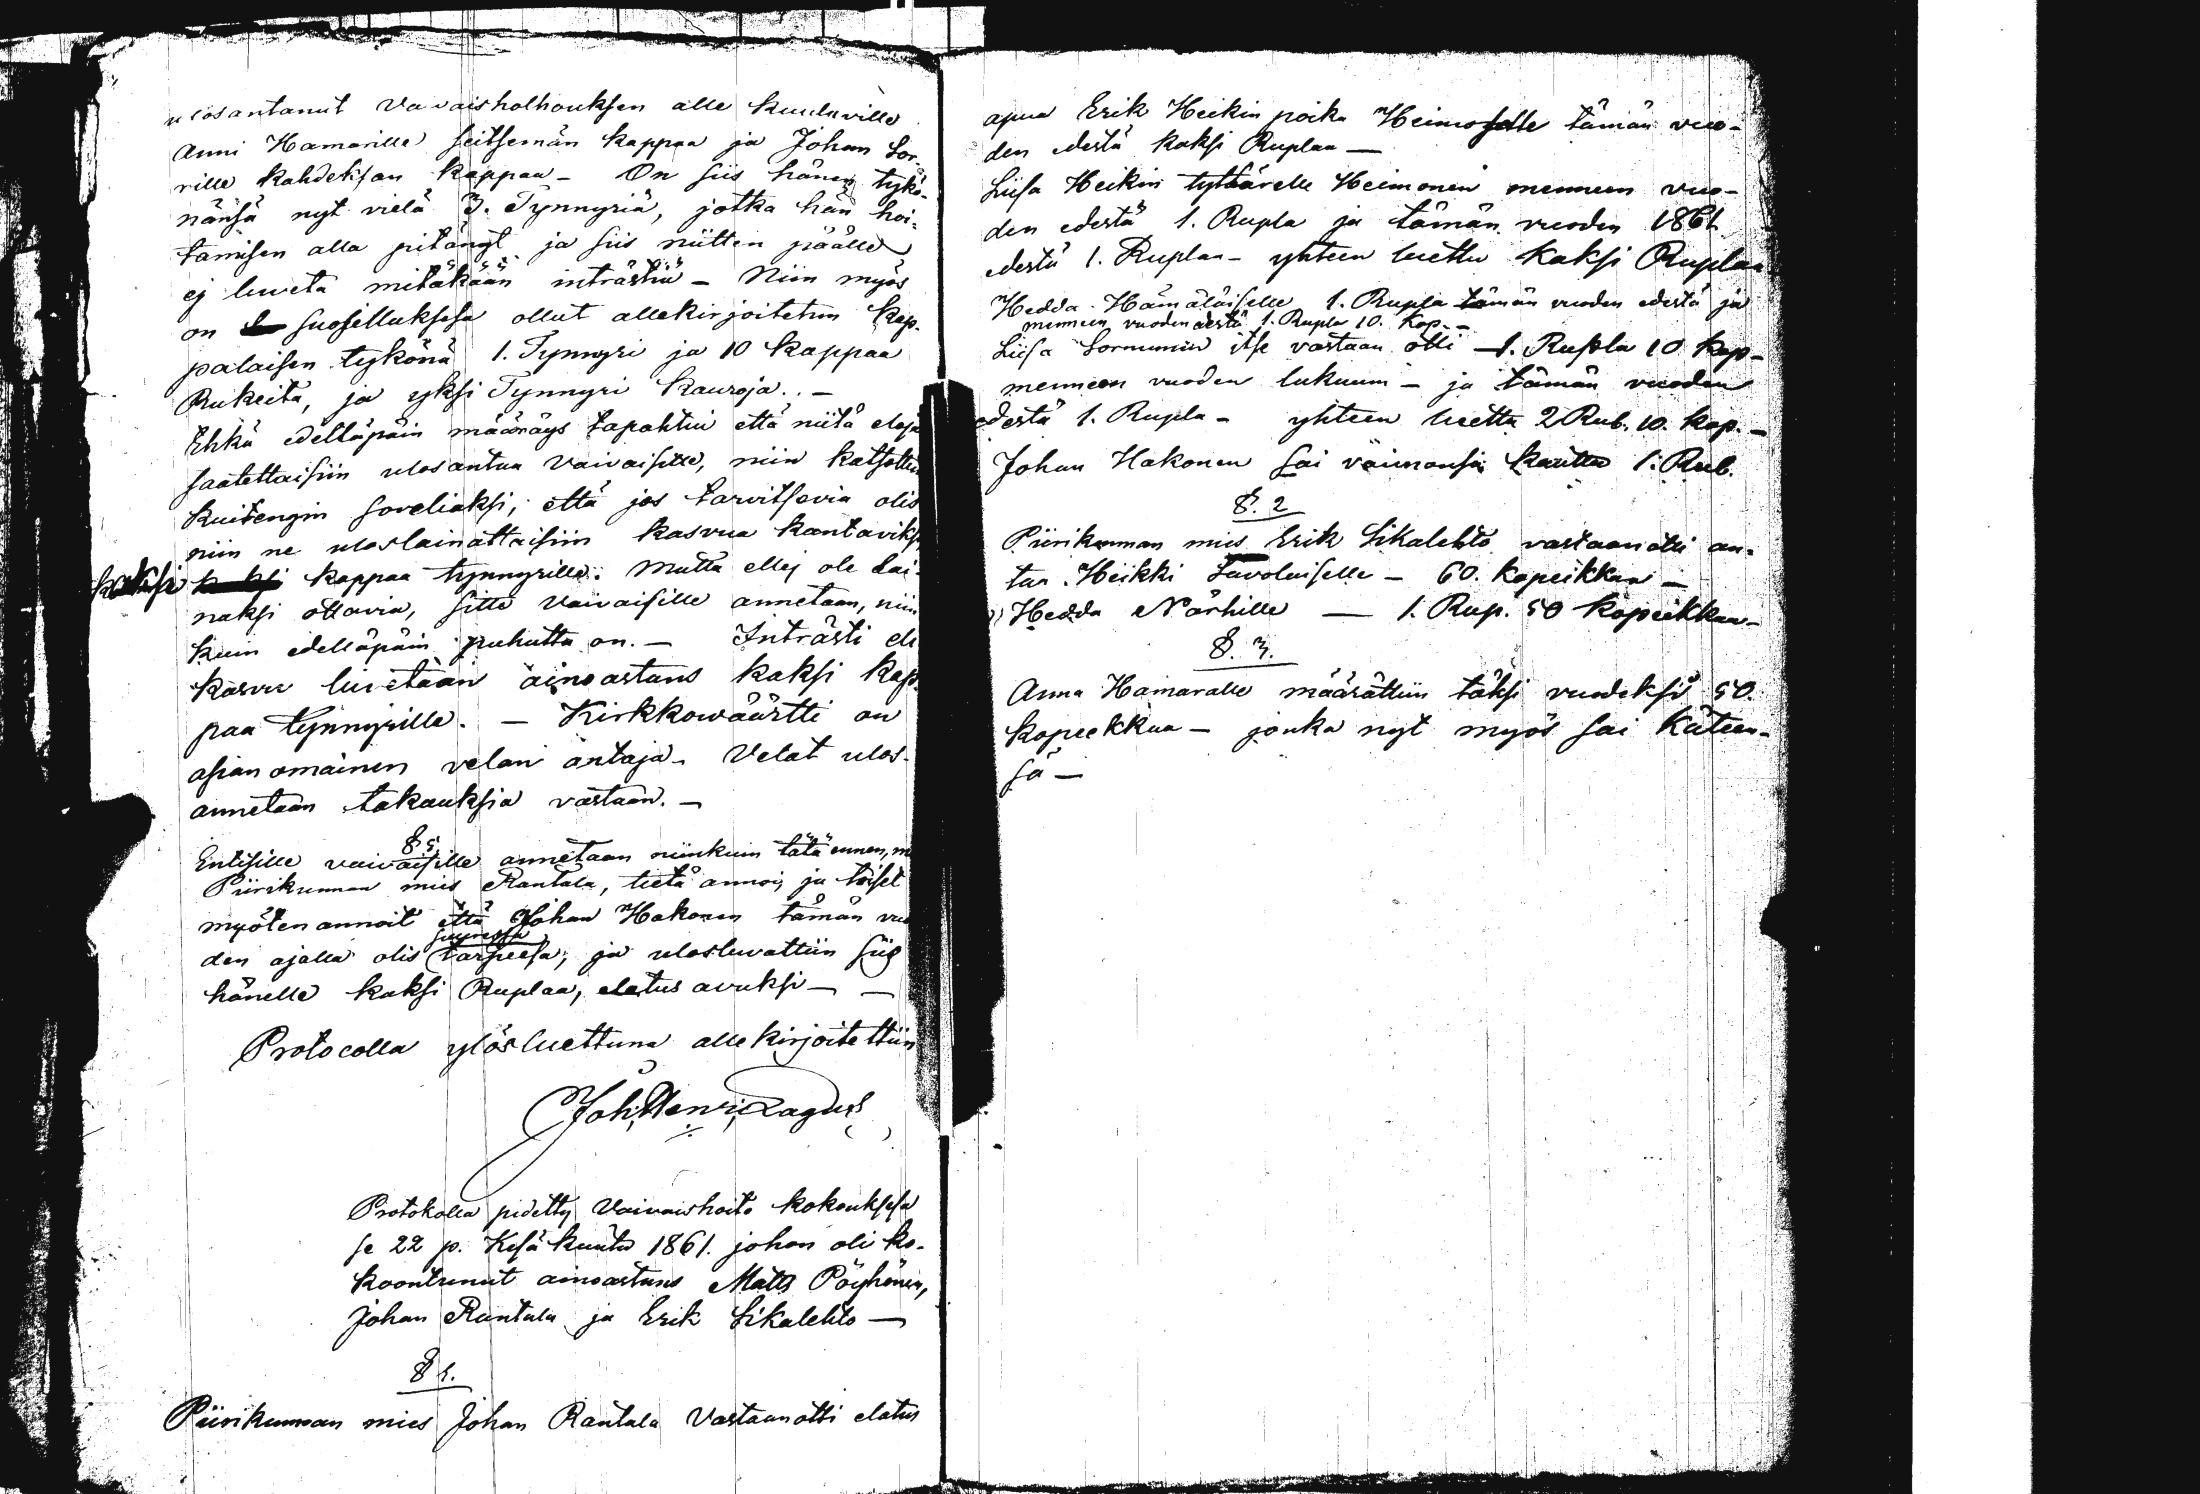 ulosantanut Vaivaisholhouksen alle kuuluville
Anni Hamarille seitsemän kappaa ja Johan Sor-
rille kahdeksan kappaa - On siis hänen tykö-
nänsä nyt vielä 3. Tynnyriä, jotka hän hoi-
tamisen alla pitänyt ja siis niitten päälle
ej lueta mitäkään inträstiä - Niin myös
on suosselluksesa ollut allekirjoitetun Kap-
palaisen tykönä 1. Tynnyri ja 10 kappaa
Rukeita, ja yksi Tynnyri Kauroja. -
Ehkä edelläpäin määräys tapahtui että niitä eloja
saatettaisiin ulosantaa Vaivaisille, niin katsottiin
kuitengin soveliaksi, että jos tarvitsevia olis
niin ne uloslainattaisiin kasvua kantaviksi
kaksi kappaa tynnyrille. Mutta ellej ole lai-
naksi ottavia, sitte Vaivaisille annetaan, niin
kuin edelläpäin puhuttu on. - Inträsti eli
kasvu luetaan ainoastans kaksi kap-
paa tynnyrille. - Kirkkowäärtti on
asianomainen velan antaja - Velat ulos-
annetaan takauksia vastaan. -
§ 5.
Entisille vaivaisille annetaan niinkuin tätä ennen,
Piirikunnan mies Rantala, tietä annoi, ja toiset
myöten annoit että Johan Hakonen tämän vuo
suuressa
den ajalla olis tarpeesa, ja ulosluvattiin siis
hänelle kaksi Ruplaa, elatus avuksi - -
Protocolla ylösluettuna allekirjoitettiin
Joh. Henr. Lagus
Protokolla pidetty Vaivaishoito kokouksesa
se 22 p. Kesäkuuta 1861. johon oli ko-
koontunut ainoastans Matts Pöyhönen,
Johan Rantala ja Erik Sikalehto -
§ 1.
Piirikunnan mies Johan Rantala Vastaanotti elatus
apua Erik Heikin poika Heimoselle tämän vuo-
den edestä kaksi Ruplaa -
Liisa Heikin tyttärelle Heimonen menneen vuo-
den edestä 1. Rupla ja tämän vuoden 1861
edestä 1. Ruplaa - yhteen luettu kaksi Ruplaa
Hedda Hämäläiselle 1. Rupla tämän vuoden edestä ja
menneen vuoden edestä 1. Rupla 10. Kop. -
Liisa Sormunen itse vastaan otti - 1. Rupla 10 kop -
menneen vuoden lukuun - ja tämän vuoden
edestä 1. Rupla - yhteen luettu 2 Rub. 10. kop. -
Johan Hakonen sai vaimonsa kautta 1. Rub.
§. 2
Piirikunnan mies Erik Sikalehto vastaanotti an-
taa Heikki Savolaiselle - 60. kopeikkaa -
Hedda Närhille - 1. Rup. 50 kopeikkaa -
§. 3.
Anna Hamaralle määrättiin täksi vuodeksi 50.
kopeekkaa - jonka nyt myös sai käteen-
sä -